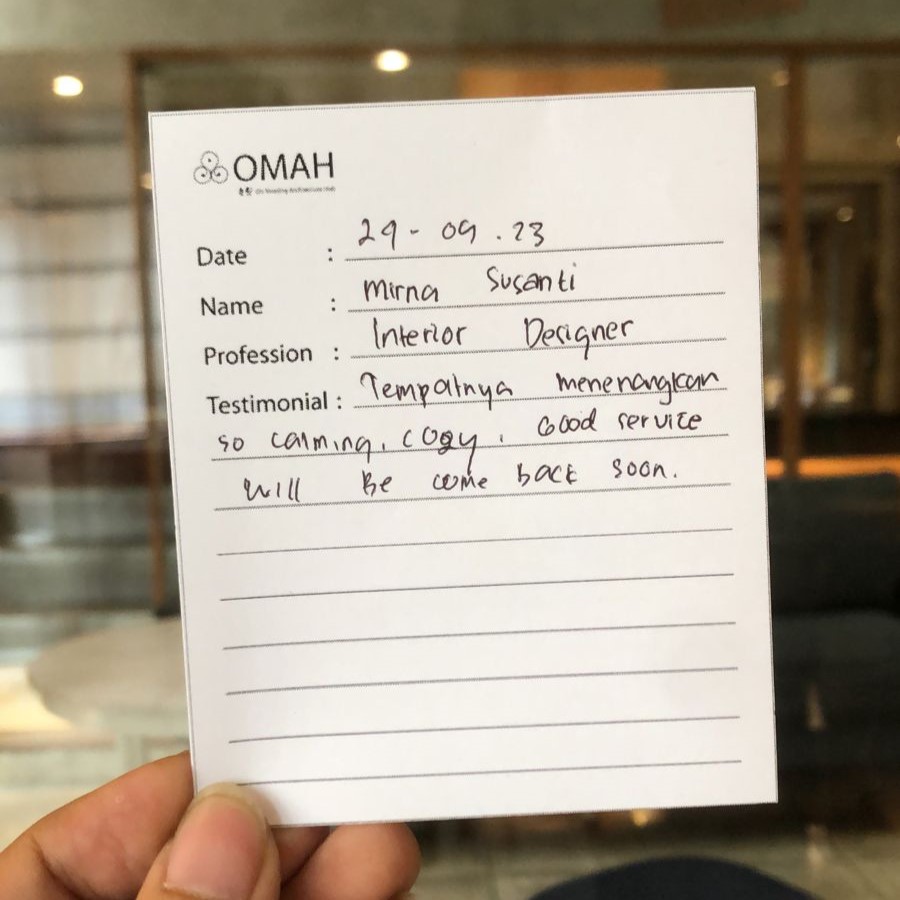 OMAH
Date : 29 - 09 . 23
Name : Mirna Susanti
Profession : Interior Designer
Testimonial : Tempatnya menenangkan
so calming, cozy. Good service
will be come back soon.